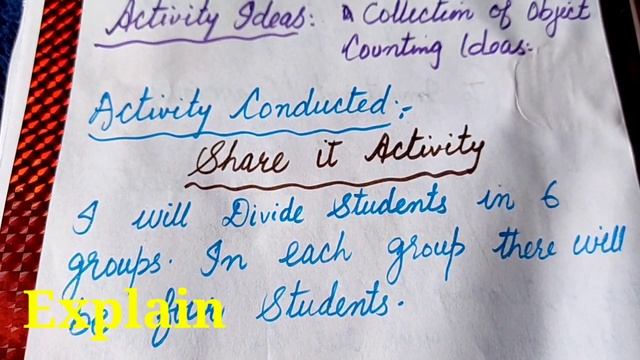 Activity Ideas: A Collection of Object
Counting Ideas:-
Activity Conducted:-
Share it Activity
I will Divide Students in 6
groups. In each group there will
be Students.
Explain